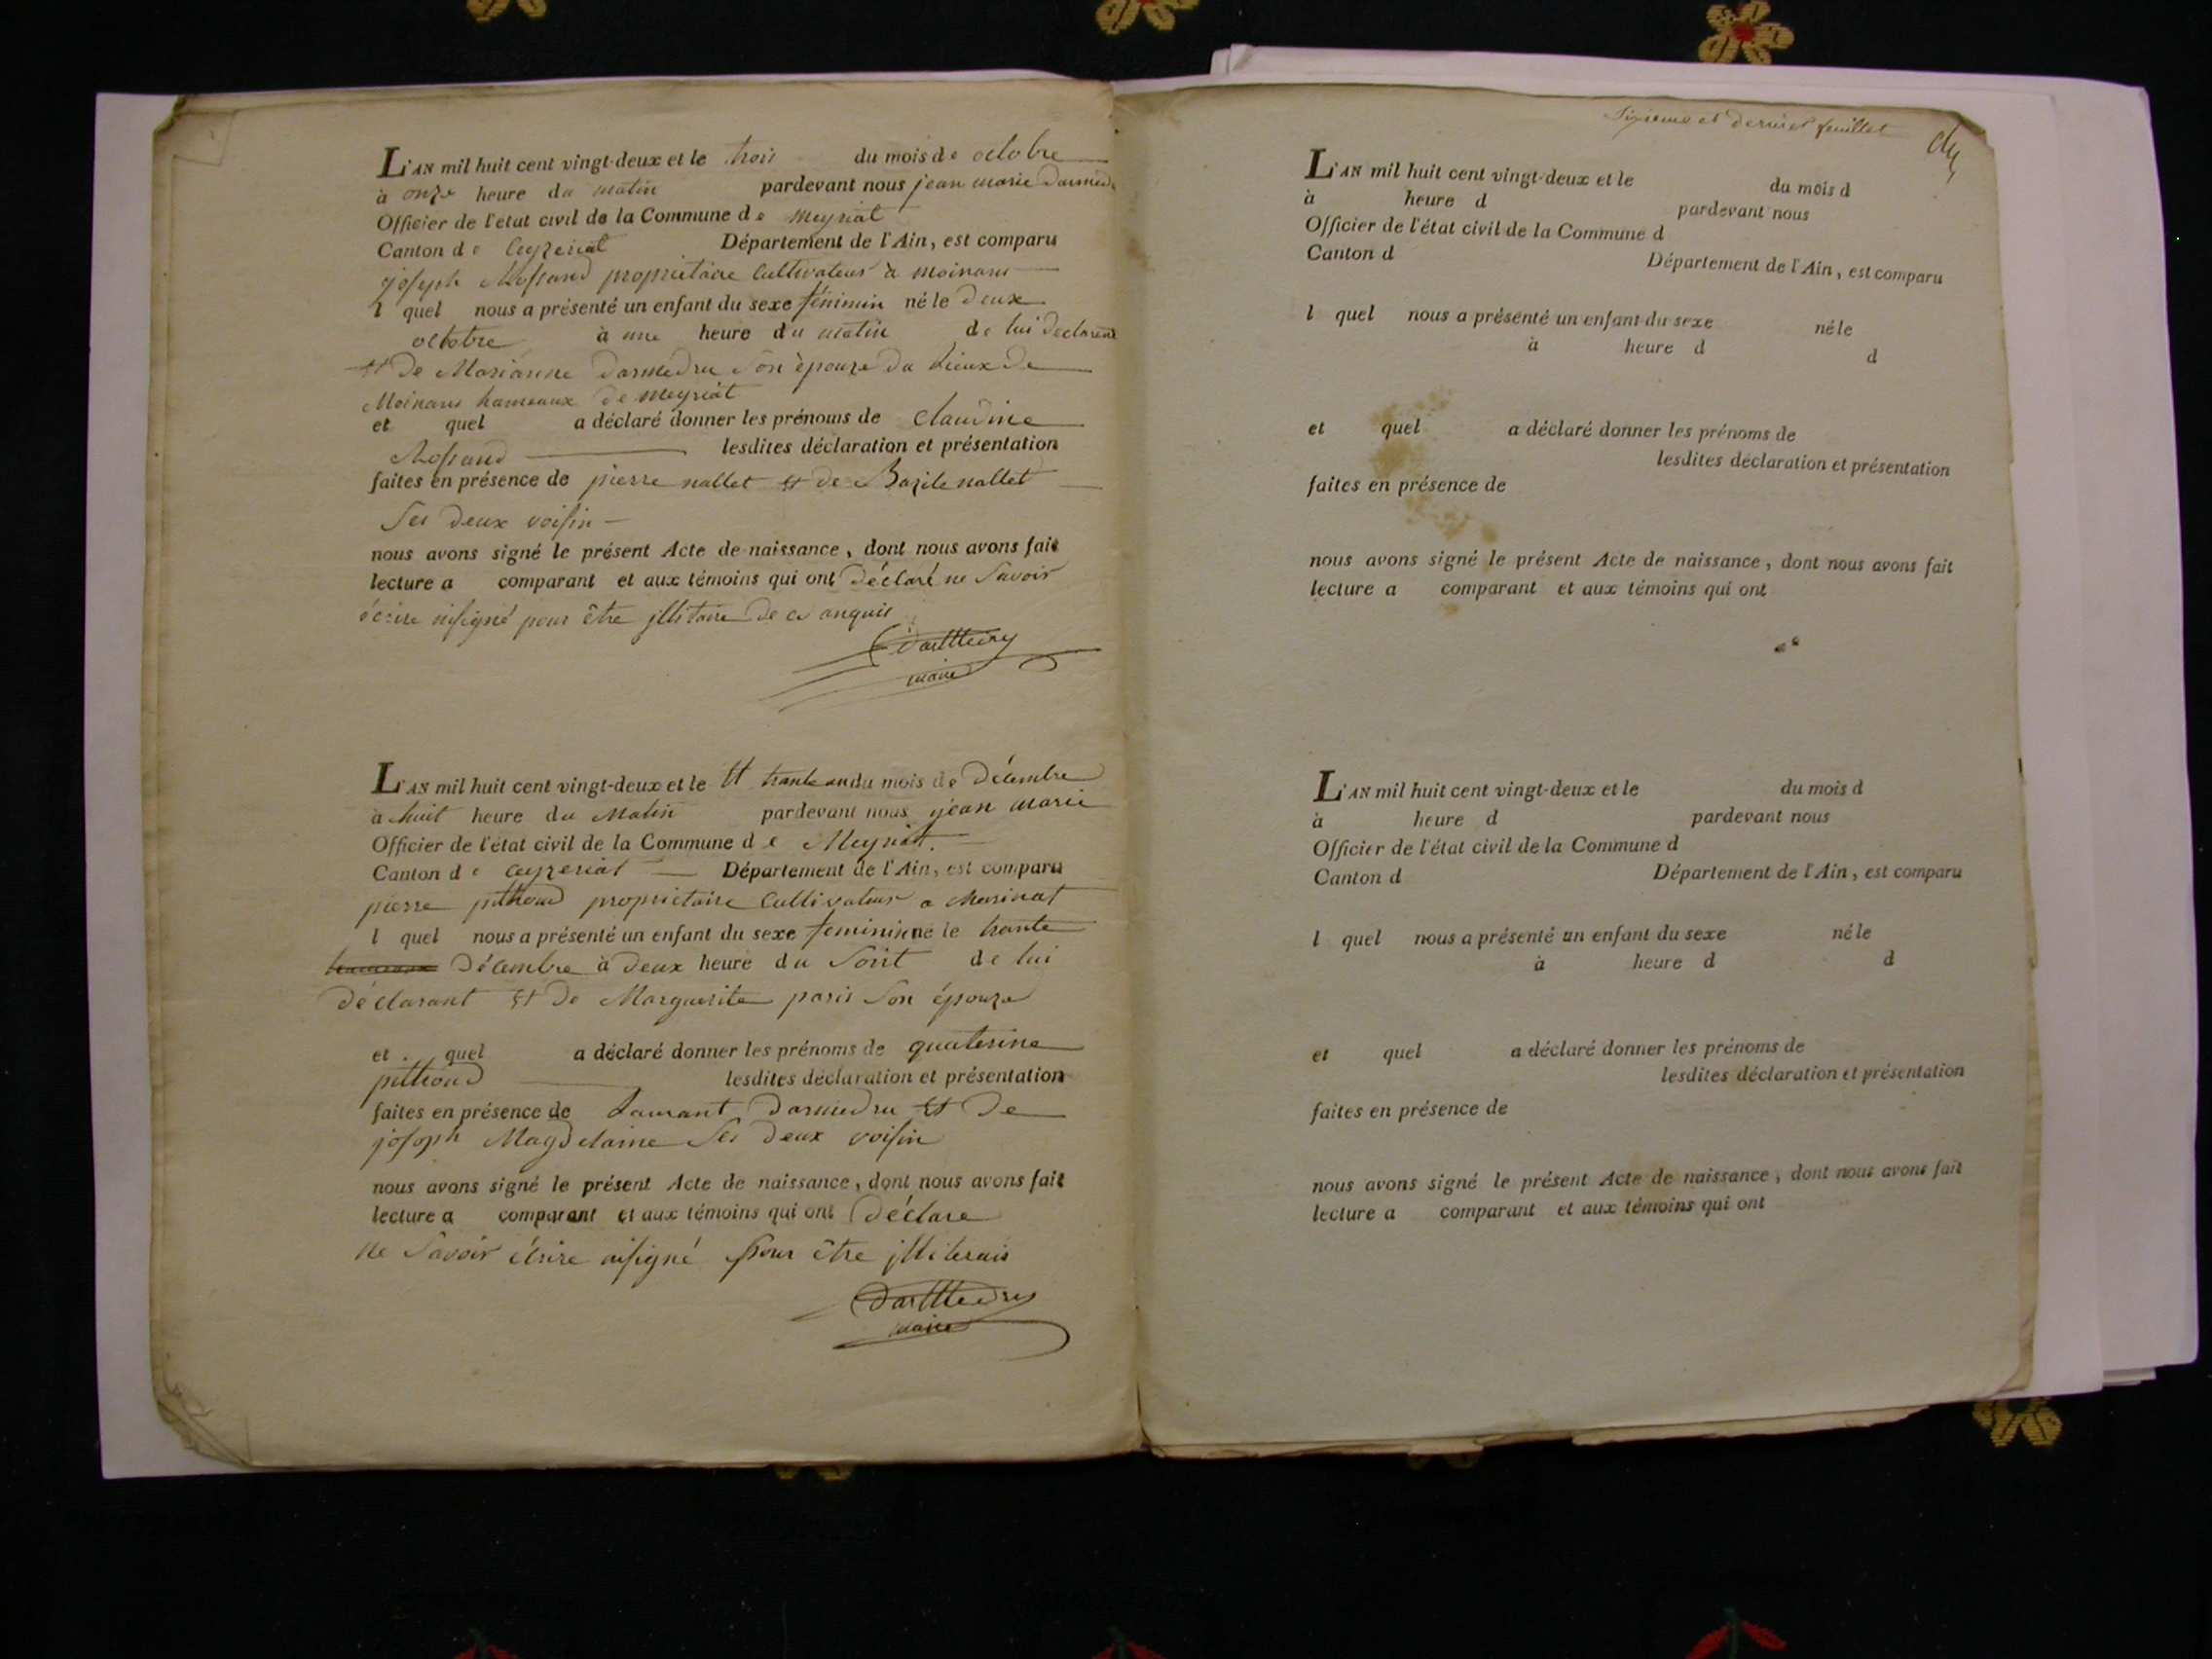 L'AN mil huit cent vingt-deux et le trois du mois de octobre
à onze heure du matin pardevant nous jean marie darmedru
Officier de l'etat civil de la Commune de meyriat
Canton de Ceyzeriat Département de l'Ain, est comparu
joseph Rossand proprietaire Cultivateur à moinans
l quel nous a présenté un enfant du sexe féminin né le deux
octobre à une heure du matin de lui declarant
et de Marianne darmedru son épouze du Lieux de
Moinans hameaux de meyriat
et quel a déclaré donner les prénoms de claudine
Rossand lesdites déclaration et présentation
faites en présence de pierre nallet et de Bazile nallet
Ses deux voisin
nous avons signé le présent Acte de naissance, dont nous avons fait
lecture a comparant et aux témoins qui ont déclaré ne Savoir
écrire nisigné pour être illitaire de ce anquis
Darmedru
maire
L'AN mil huit cent vingt-deux et le et trante un du mois de décembre
à huit heure du Matin pardevant nous jean marie
Officier de l'état civil de la Commune de Meyriat.
Canton de Ceyzeriat Département de l'Ain, est comparu
pierre pithoud proprietaire Cultivateur a
l quel nous a présenté un enfant du sexe feminin né le trante
décembre à deux heure du Soirt de lui
déclarant et de Marguerite paris Son épouze
et quel a déclaré donner les prénoms de quaterine
pithoud lesdites déclaration et présentation
faites en présence de Laurant darmedru et de
joseph Magdelaine Ses deux voisin
nous avons signé le présent Acte de naissance, dont nous avons fait
lecture a comparant et aux témoins qui ont déclare
ne Savoir écrire nisigné pour être illiterais
Darmedru
maire
Sixieme et dernier feuillet
L'AN mil huit cent vingt-deux et le du mois d
à heure d pardevant nous
Officier de l'état civil de la Commune d
Canton d Département de l'Ain, est comparu
l quel nous a présenté un enfant du sexe né le
à heure d d
et quel a déclaré donner les prénoms de
lesdites déclaration et présentation
faites en présence de
nous avons signé le présent Acte de naissance, dont nous avons fait
lecture a comparant et aux témoins qui ont
L'AN mil huit cent vingt-deux et le du mois d
à heure d pardevant nous
Officier de l'état civil de la Commune d
Canton d Département de l'Ain, est comparu
l quel nous a présenté un enfant du sexe né le
à heure d d
et quel a déclaré donner les prénoms de
lesdites déclaration et présentation
faites en présence de
nous avons signé le présent Acte de naissance, dont nous avons fait
lecture a comparant et aux témoins qui ont